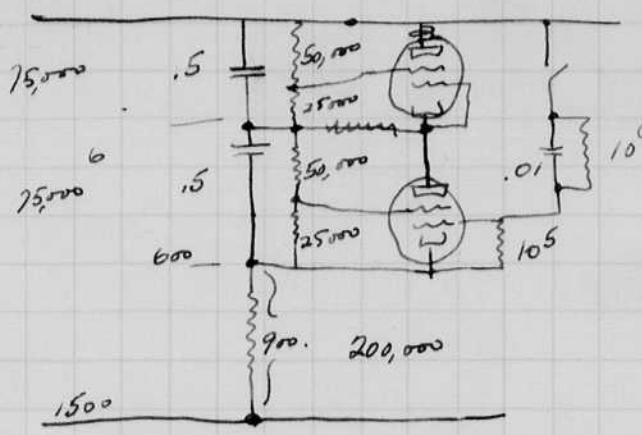 75,000
.5
50,000
25000
6
75,000
.5
50,000
25000
.01
10⁵
600
900.
200,000
1500